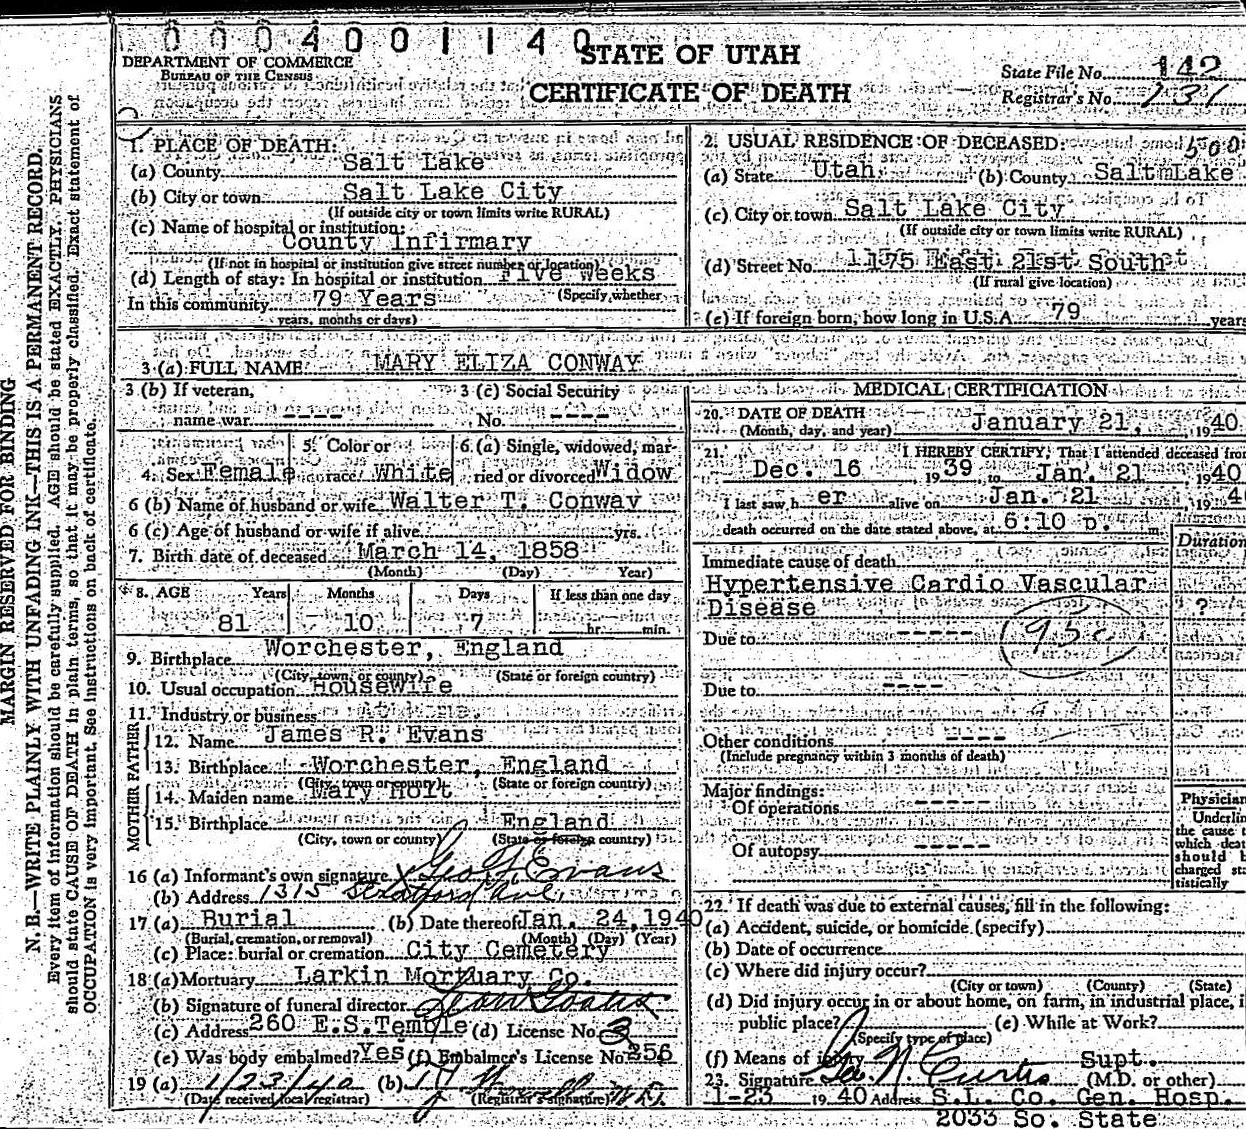 0 0 0 4 0 0 1 1 4 0
STATE OF UTAH
DEPARTMENT OF COMMERCE
BUREAU OF THE CENSUS
CERTIFICATE OF DEATH
State File No. 142
Registrar's No. 131
MARGIN RESERVED FOR BINDING
N. B.—WRITE PLAINLY WITH UNFADING INK—THIS IS A PERMANENT RECORD.
Every item of information should be carefully supplied. AGE should be stated EXACTLY. PHYSICIANS
should state CAUSE OF DEATH in plain terms, so that it may be properly classified. Exact statement of
OCCUPATION is very important. See instructions on back of certificate.
1. PLACE OF DEATH:
(a) County Salt Lake
(b) City or town Salt Lake City
(If outside city or town limits write RURAL)
(c) Name of hospital or institution:
County Infirmary
(If not in hospital or institution give street number or location)
(d) Length of stay: In hospital or institution Five Weeks
(Specify whether
In this community 79 Years
years, months or days)
2. USUAL RESIDENCE OF DECEASED:
(a) State Utah (b) County Salt Lake
(c) City or town Salt Lake City
(If outside city or town limits write RURAL)
(d) Street No. 1175 East 21st South
(If rural give location)
(e) If foreign born, how long in U.S.A. 79 years
3 (a) FULL NAME MARY ELIZA CONWAY
3 (b) If veteran, name war ----
3 (c) Social Security No. ----
4. Sex Female 5. Color or race White 6. (a) Single, widowed, married or divorced Widow
6 (b) Name of husband or wife Walter T. Conway
6 (c) Age of husband or wife if alive yrs.
7. Birth date of deceased March 14, 1858
(Month) (Day) Year)
8. AGE Years Months Days If less than one day
81 10 7 hr. min.
9. Birthplace Worchester, England
(City, town, or county) (State or foreign country)
10. Usual occupation Housewife
11. Industry or business
FATHER
12. Name James R. Evans
13. Birthplace Worchester, England
(City, town or county) (State or foreign country)
MOTHER
14. Maiden name Mary Holt
15. Birthplace England
(City, town or county) (State or foreign country)
16 (a) Informant's own signature X Geo. F. Evans
(b) Address 1315 Stratford Ave.
17 (a) Burial (b) Date thereof Jan. 24, 1940
(Burial, cremation, or removal) (Month) (Day) (Year)
(c) Place: burial or cremation City Cemetery
18 (a) Mortuary Larkin Mortuary Co.
(b) Signature of funeral director
(c) Address 260 E.S.Temple (d) License No. 3
(e) Was body embalmed? Yes (f) Embalmer's License No. 356
19 (a) 1/23/40 (b)
(Date received local registrar) (Registrar's signature)
MEDICAL CERTIFICATION
20. DATE OF DEATH
(Month, day, and year) January 21, 1940
21. I HEREBY CERTIFY, That I attended deceased from
Dec. 16 1939, to Jan. 21 1940
I last saw her alive on Jan. 21, 1940
death occurred on the date stated above, at 6:10 p. m.
Duration
Immediate cause of death
Hypertensive Cardio Vascular
Disease ?
Due to -----
95c
Due to ----
Other conditions ----
(Include pregnancy within 3 months of death)
Major findings:
Of operations -----
Of autopsy -----
Physician
Underline
the cause to
which death
should be
charged sta-
tistically
22. If death was due to external causes, fill in the following:
(a) Accident, suicide, or homicide (specify)
(b) Date of occurrence
(c) Where did injury occur?
(City or town) (County) (State)
(d) Did injury occur in or about home, on farm, in industrial place, in
public place? (e) While at Work?
(Specify type of place)
(f) Means of injury
23. Signature N. Curtis Supt.
(M.D. or other)
1-23 1940 Address S.L. Co. Gen. Hosp.
2033 So. State